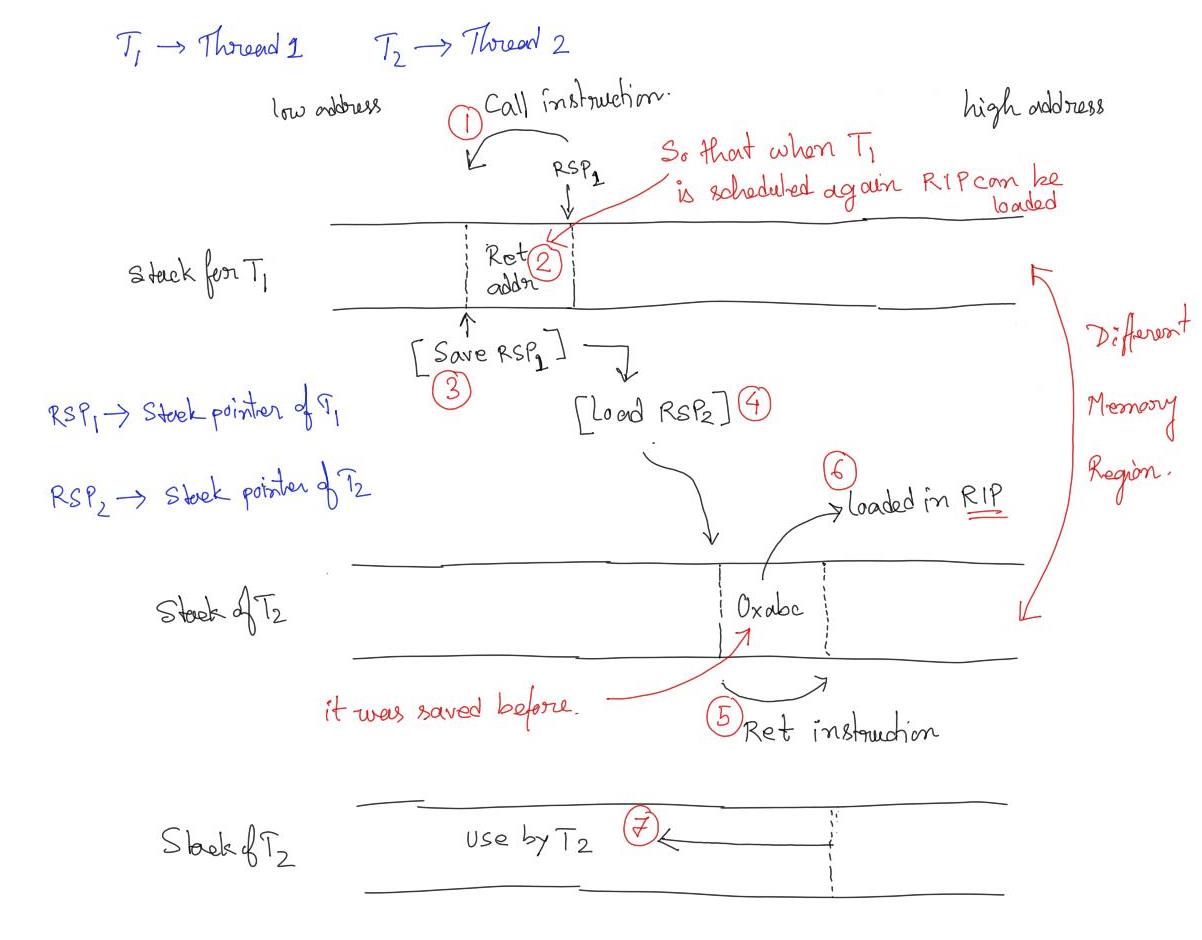 T1 → Thread 1 T2 → Thread 2
low address
① Call instruction.
high address
RSP1
So that when T1
is scheduled again RIP can be
loaded
Stack for T1
Ret ②
addr
[Save RSP1]
③
[Load RSP2] ④
Different
Memory
Region.
RSP1 → Stack pointer of T1
RSP2 → Stack pointer of T2
⑥
loaded in RIP
Stack of T2
0xabc
it was saved before.
⑤ Ret instruction
Stack of T2
Use by T2 ⑦